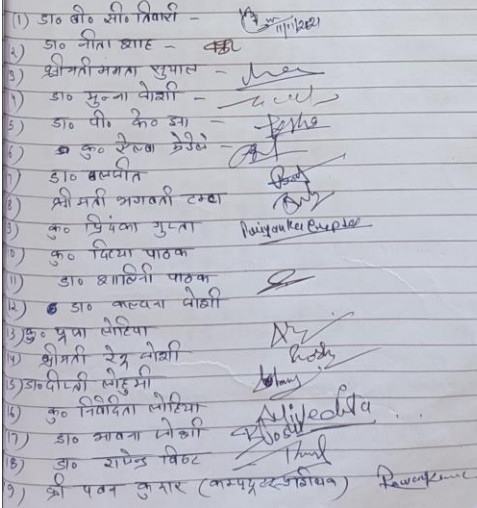 (1) डा० बी० सी० तिवारी - 11/11/2021
2) डा० गीता शाह -
3) श्रीमती ममता सुयाल -
4) डा० मुन्ना जोशी -
5) डा० पी० के० झा -
6) कु०
7) डा० बलजीत
8) श्रीमती भगवती टम्टा
9) कु० प्रियंका गुप्ता Priyanka Gupta
10) कु० दिव्या पाठक
11) डा० शालिनी पाठक
12) डा० कल्पना जोशी
13) कु० प्रभा लोहिया
14) श्रीमती रेनू जोशी Joshi
15) डा० दीप्ती लोहुमी
16) कु० निवेदिता लोहिया Nivedita
17) डा० भावना जोशी
18) डा० राजेन्द्र बिष्ट
9) श्री पवन कुमार (कम्प्यूटर Pawan Kumar